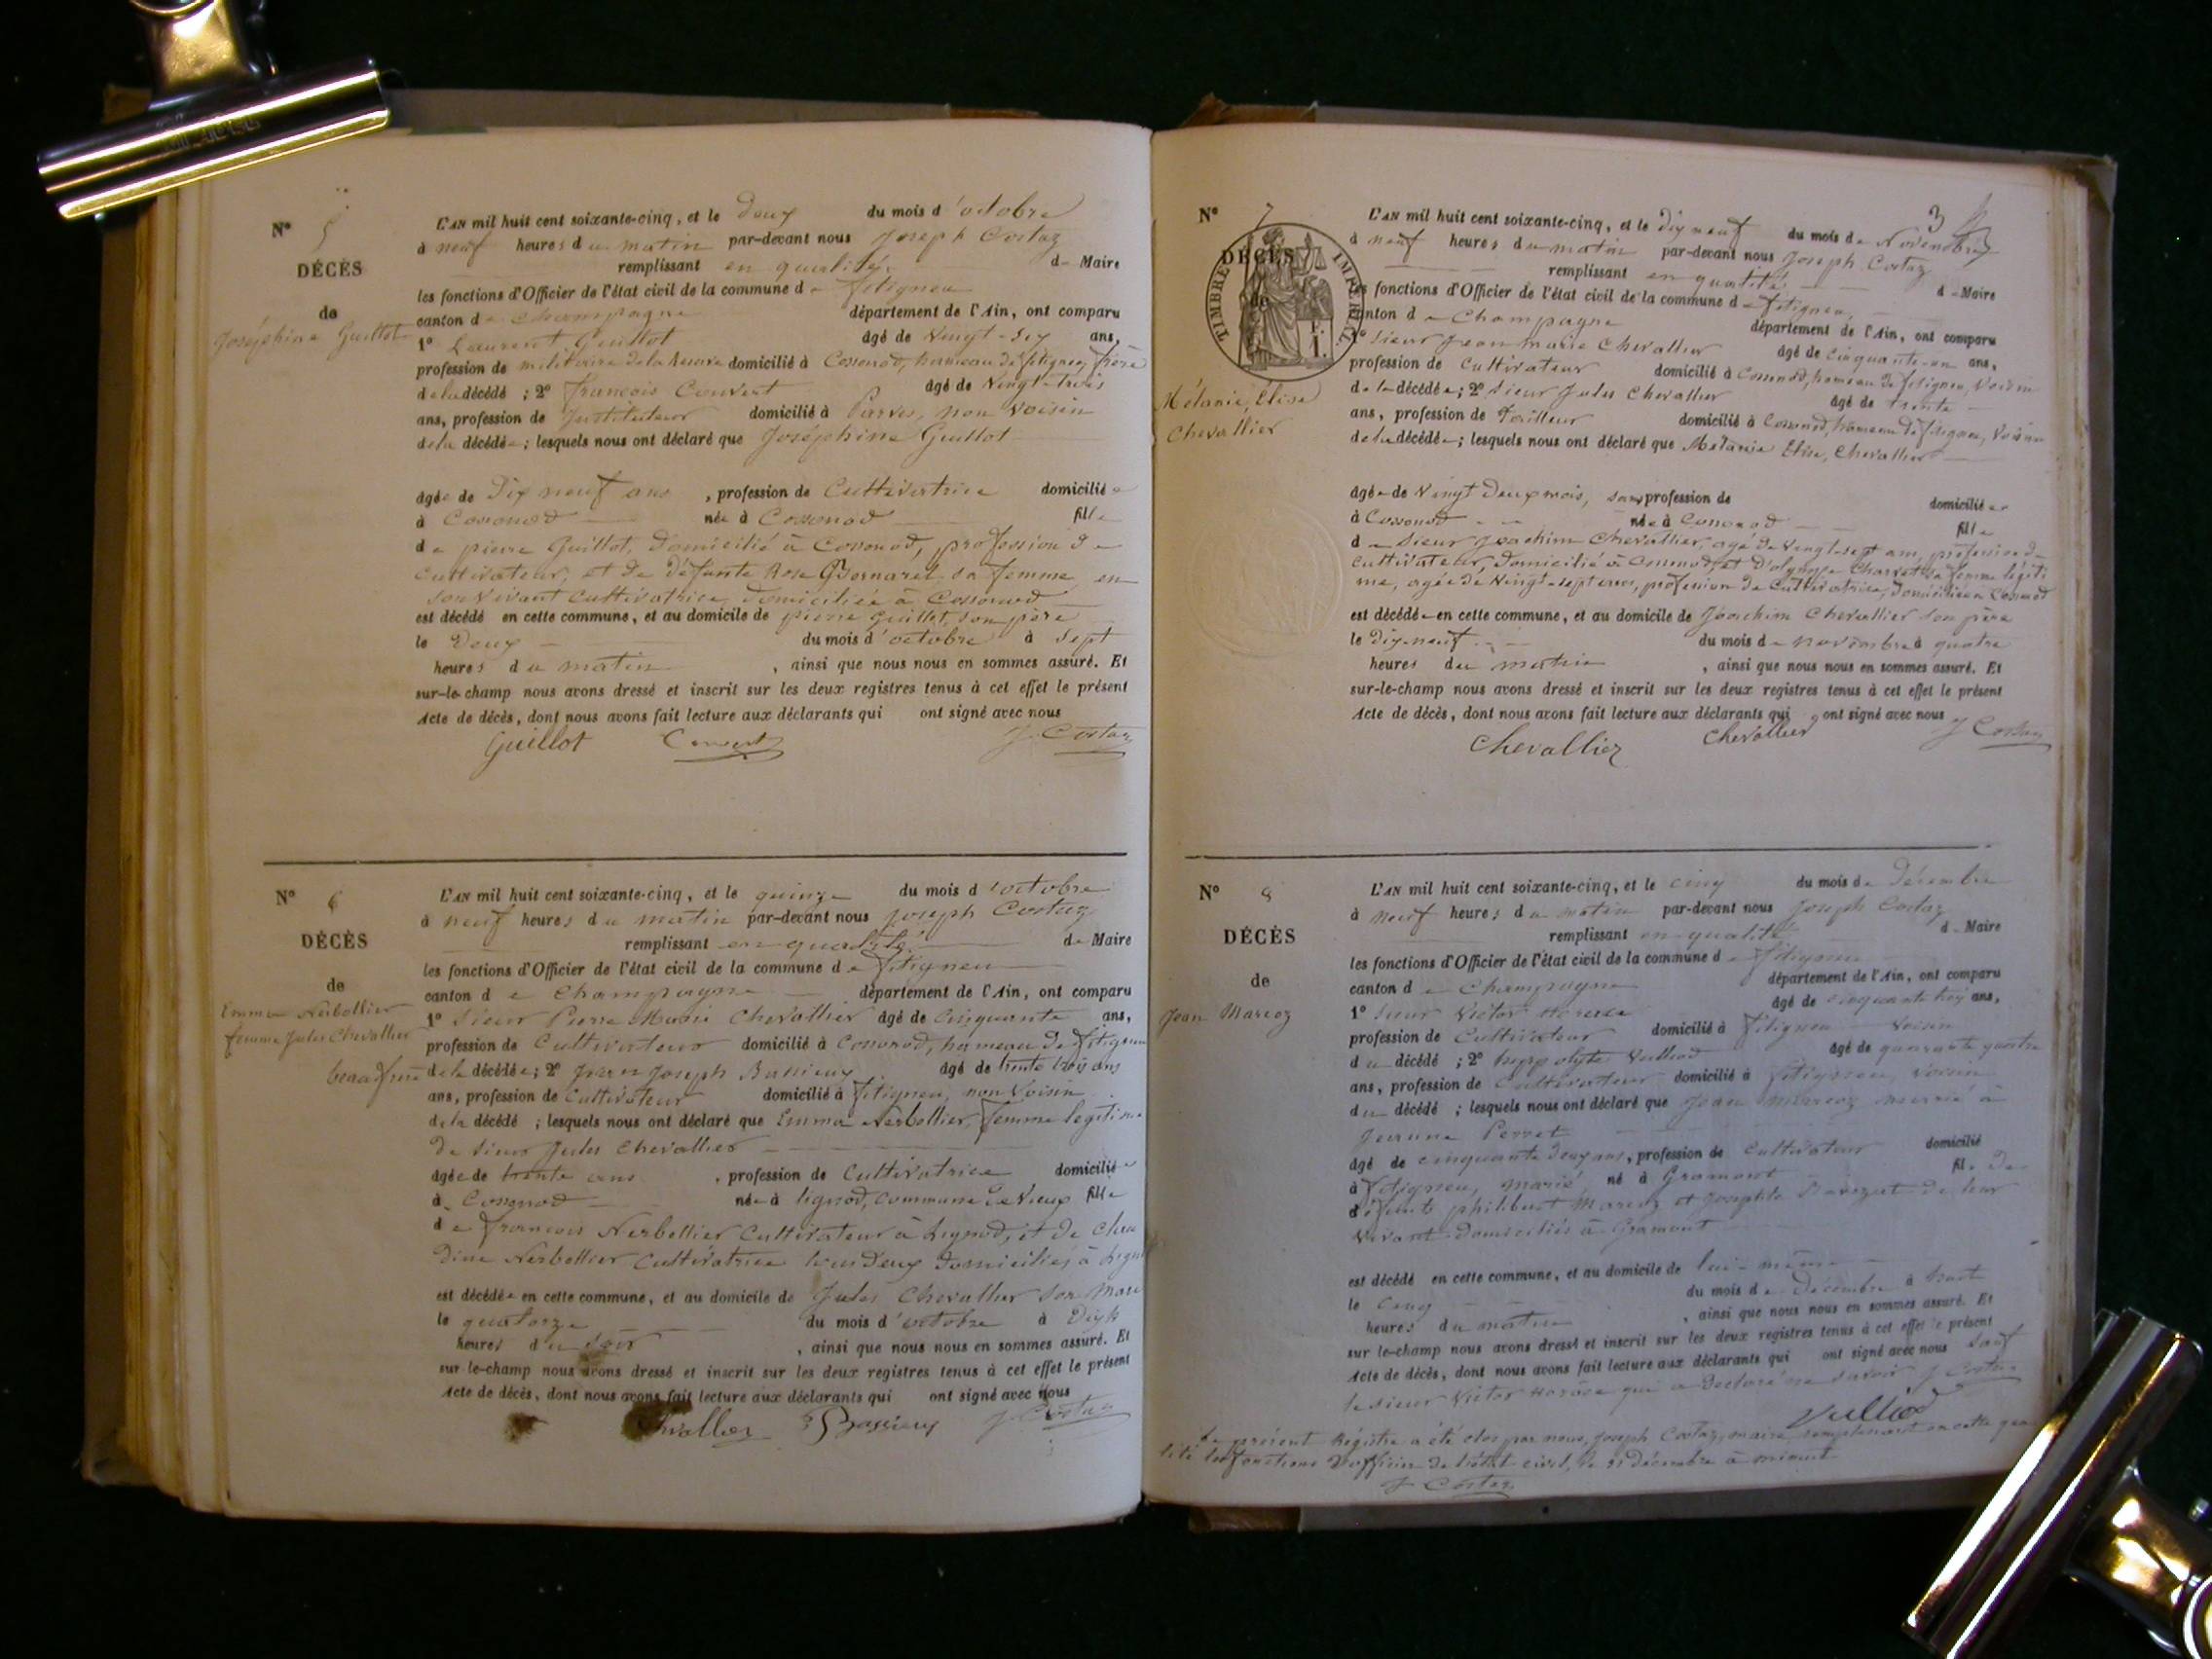 N° 5
DÉCÈS
de
Joséphine Guillot
L'AN mil huit cent soixante-cinq, et le Deux du mois d'octobre
à neuf heures du matin par-devant nous Joseph Costaz
remplissant en qualité de Maire
les fonctions d'Officier de l'état civil de la commune de fitigneu
canton de Champagne département de l'Ain, ont comparu
1° Laurent Guillot âgé de Vingt-six ans,
profession de militaire de la réserve domicilié à Cossonod, hameau de fitigneu, frère
de la décédé ; 2° françois Convert âgé de Vingt-trois
ans, profession de Instituteur domicilié à Parves, non Voisin
de la décédée ; lesquels nous ont déclaré que Joséphine Guillot
âgée de Dix neuf ans, profession de Cultivatrice domiciliée
à Cossonod née à Cossonod fille
de pierre Guillot, Domicilié à Cossonod, profession de
Cultivateur, et de défunte Rose sa femme, en
son Vivant Cultivatrice, domiciliée à Cossonod
est décédé en cette commune, et au domicile de pierre Guillot, son père
le Deux du mois d'octobre à sept
heures du matin, ainsi que nous nous en sommes assuré. Et
sur-le-champ nous avons dressé et inscrit sur les deux registres tenus à cet effet le présent
Acte de décès, dont nous avons fait lecture aux déclarants qui ont signé avec nous
Guillot Convert J. Costaz
N° 6
DÉCÈS
de
Emma Nerbollier
femme Jules Chevallier
beaufrère
L'AN mil huit cent soixante-cinq, et le quinze du mois d'octobre
à neuf heures du matin par-devant nous Joseph Costaz
remplissant en qualité de Maire
les fonctions d'Officier de l'état civil de la commune de fitigneu
canton de Champagne département de l'Ain, ont comparu
1° Sieur Pierre Marie Chevallier âgé de Cinquante ans,
profession de Cultivateur domicilié à Cossonod, hameau de fitigneu
de la décédée ; 2° Jean Joseph Bassieux âgé de trente trois ans
ans, profession de Cultivateur domicilié à fitigneu, non Voisin
de la décédé ; lesquels nous ont déclaré que Emma Nerbollier, femme legitime
de Sieur Jules Chevallier
âgée de trente ans, profession de Cultivatrice domiciliée
à Cossonod née à lignod, Commune de Vieux fille
de françois Nerbollier Cultivateur à Lignod, et de Clau
dine Nerbollier Cultivatrice tous deux domiciliés à
est décédée en cette commune, et au domicile de Jules Chevallier son Mari
le quatorze du mois d'octobre à Dix
heures du soir, ainsi que nous nous en sommes assuré. Et
sur le-champ nous avons dressé et inscrit sur les deux registres tenus à cet effet le présent
Acte de décès, dont nous avons fait lecture aux déclarants qui ont signé avec nous
Chevallier Bassieux J. Costaz
3
N° 7
DÉCÈS
de
TIMBRE IMPÉRIAL
Mélanie, Elise
Chevallier
L'AN mil huit cent soixante-cinq, et le dix neuf du mois de Novembre
à neuf heures du matin par-devant nous Joseph Costaz
remplissant en qualité de Maire
les fonctions d'Officier de l'état civil de la commune de fitigneu
canton de Champagne département de l'Ain, ont comparu
1° Sieur Jean Marie Chevallier âgé de Cinquante-un ans,
profession de Cultivateur domicilié à Cossonod, hameau de fitigneu, Voisin
de la décédée ; 2° Sieur Jules Chevallier âgé de trente
ans, profession de Tailleur domicilié à Cossonod, hameau de fitigneu, Voisin
de la décédée ; lesquels nous ont déclaré que Mélanie Elise, Chevallier
âgée de Vingt Deux mois, sans profession de domiciliée
à Cossonod née à Cossonod fille
de Sieur Joachim Chevallier, agé de Vingt-sept ans, profession de
Cultivateur, domicilié à et D'olympe Charvet sa femme légiti
me, agée de Vingt-sept ans, profession de Cultivatrice, domiciliée à Cossonod
est décédée en cette commune, et au domicile de Joachim Chevallier son père
le dix-neuf du mois de novembre à quatre
heures du matin, ainsi que nous nous en sommes assuré. Et
sur-le-champ nous avons dressé et inscrit sur les deux registres tenus à cet effet le présent
Acte de décès, dont nous avons fait lecture aux déclarants qui ont signé avec nous
Chevallier Chevallier J Costaz
N° 8
DÉCÈS
de
Jean Marcoz
L'AN mil huit cent soixante-cinq, et le cinq du mois de Décembre
à neuf heures du matin par-devant nous Joseph Costaz
remplissant en qualité de Maire
les fonctions d'Officier de l'état civil de la commune de fitigneu
canton de Champagne département de l'Ain, ont comparu
1° Sieur Victor Horace âgé de cinquante trois ans,
profession de Cultivateur domicilié à fitigneu Voisin
du décédé ; 2° hyppolyte Vulliod âgé de quarante quatre
ans, profession de Cultivateur domicilié à fitigneu, Voisin
du décédé ; lesquels nous ont déclaré que Jean Marcoz marié à
Jeanne Perret
âgé de cinquante deux ans, profession de Cultivateur domicilié
à fitigneu, marié, né à Gramont fils de
défunts philibert Marcoz et Josephte de leur
Vivant domiciliés à Gramont
est décédé en cette commune, et au domicile de lui-même
le Cinq du mois de Décembre à huit
heures du matin, ainsi que nous nous en sommes assuré. Et
sur le-champ nous avons dressé et inscrit sur les deux registres tenus à cet effet le présent
Acte de décès, dont nous avons fait lecture aux déclarants qui ont signé avec nous sauf
le sieur Victor Horace qui a déclaré ne savoir J Costaz
Vulliod
Le présent Régistre a été clos par nous, Joseph Costaz, maire remplissant en cette qua
lité les fonctions D'officier de l'état civil, le 31 décembre à minuit
J Costaz